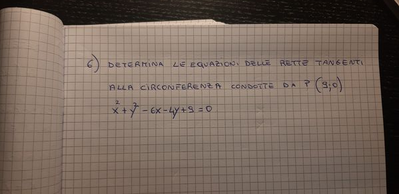 6) DETERMINA LE EQUAZIONI DELLE RETTE TANGENTI
ALLA CIRCONFERENZA CONDOTTE DA P (9;0)
x²+y²-6x-4y+9=0